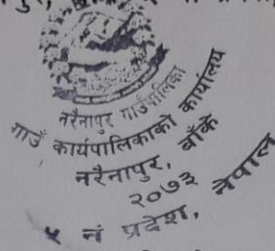 नरैनापुर गाउँपालिका
गाउँ कार्यपालिकाको कार्यालय
नरैनापुर, बाँके
२०७३
५ नं प्रदेश, नेपाल